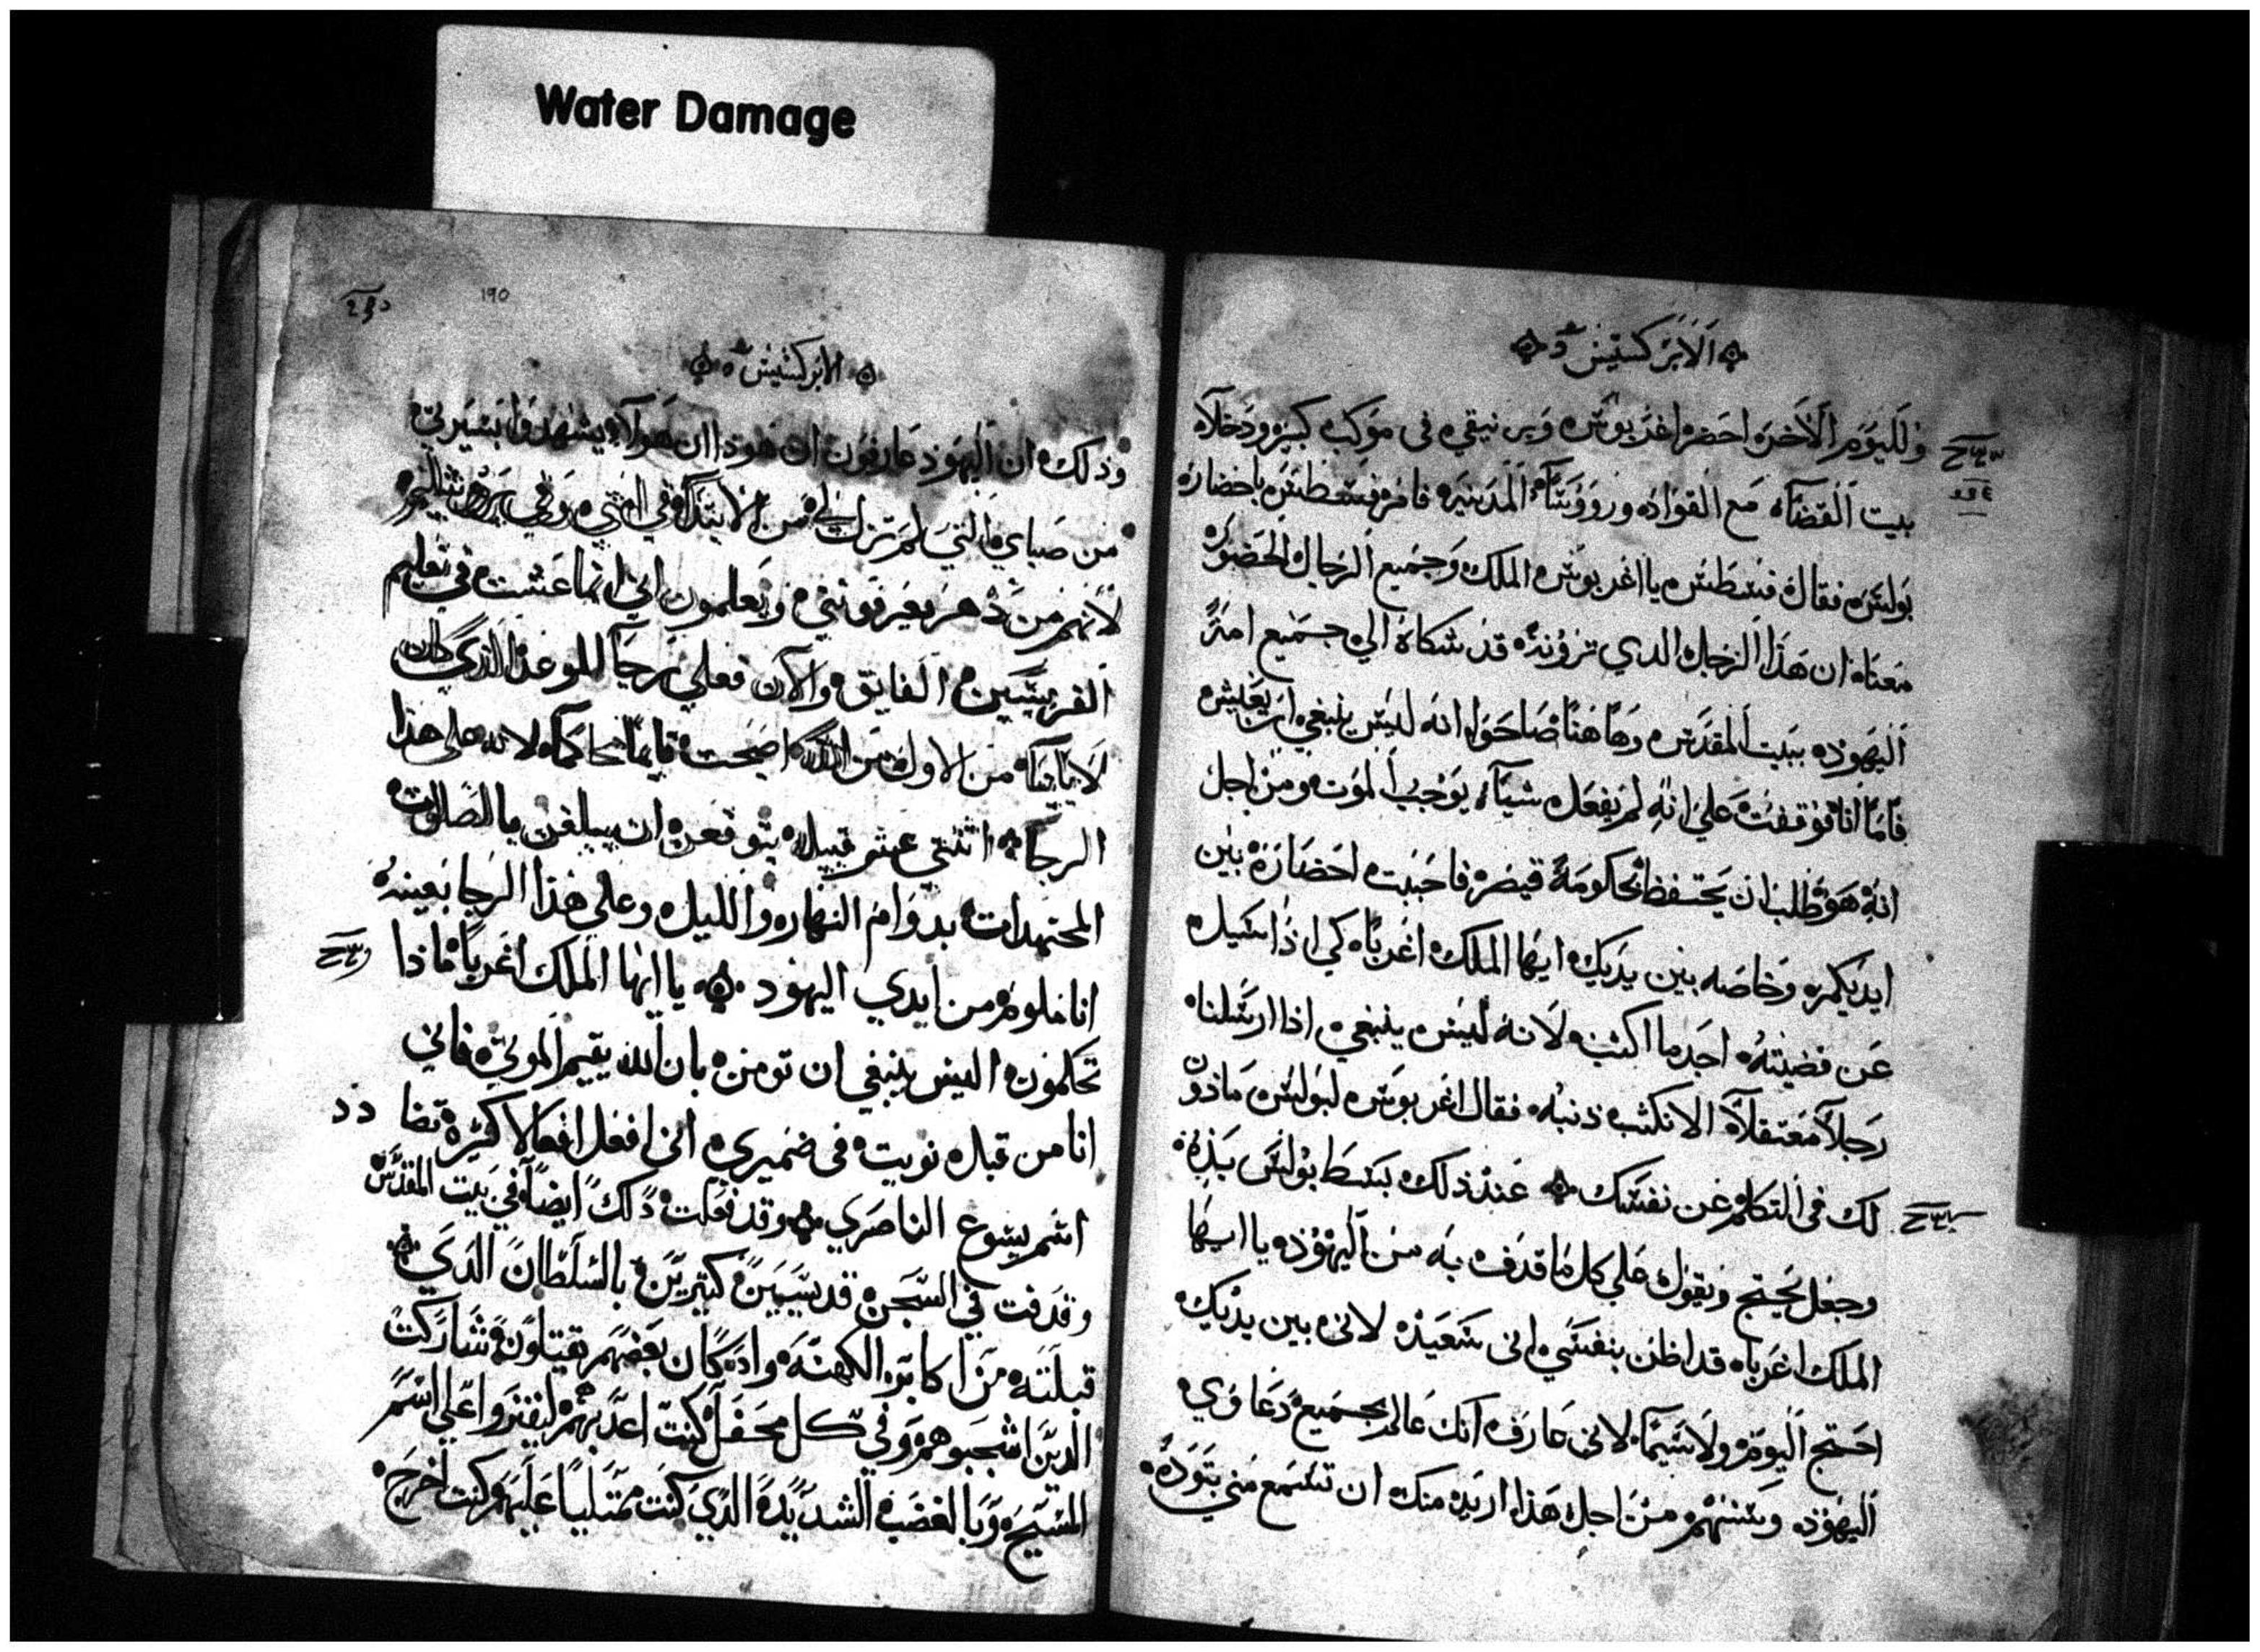 Water Damage
الابركسيس
وللیوم الاخر احضر اغربوس وبرنيقي في موكب كبير ودخلا
بيت القضاة مع القواد وروؤسآء المدينه فامر فسطس باحضار
بولس فقال فسطس يا اغربوس الملك وجميع الرجال الحضور
معنا ان هذا الرجل الدي ترونه قد شكاه الي جميع امة
اليهود ببيت المقدس وهاهنا صاحوا انه ليس ينبغي ان يعيش
فاما انا فوقفت علي انه لم يفعل شياء يوجب الموت ومن اجل
انه هو طلب ان يحتفظ لحكومة قيصر فاحببت احضاره بين
ايديكم وخاصه بين يديك ايها الملك اغربا كي اذا سيل
عن قضيته اجد ما اكتب لانه ليس ينبغي اذا ارسلنا
رجلاً معتقلاً الا نكتب ذنبه فقال اغربوس لبولس ماذون
لك في التكلم عن نفسك عند ذلك بسط بولس يده
وجعل يحتج ويقول علي كل ما قدف به من اليهود يا ايها
الملك اغربا قد اظن بنفسي اني سعيد لاني بين يديك
احتج اليوم ولاسيما لاني عارف انك عالم بجميع دعاوي
اليهود وسننهم من اجل هذا اريد منك ان تسمع مني بتوده
١٩٥
الابركسيس
وذلك ان اليهود عارفون ان هولاء يشهدوا بسيرتي
من صباي التي لم تزل لي من الابتداء في امتي وفي يروشاليم
لانهم من دهر يعرفونني ويعلمون اني انما عشت في تعليم
الفريسين الفايق والان فعلي رجاء للوعد الذي كان
لابآينا من الاول من الله اصبحت قايما محاكما لانه علي هذا
الرجاء اثنتي عشر قبيله يتوقعن ان يبلغن بالصلوات
المجتهدات بدوام النهار والليل وعلي هذا الرجا بعينه
انا ملوم من ايدي اليهود يا ايها الملك اغربا ماذا
تحكمون اليس ينبغي ان تومن بان الله يقيم الموتي فاني
انا من قبل نويت في ضميري اني افعل افعالا كثيرة تضادد
اسم يسوع الناصري وقد فعلت ذلك ايضاً في بيت المقدس
وقدفت في السجن قديسين كتيرين بالسلطان الذي
قبلته من اكابر الكهنة واد كان بعضهم يقتلون شاركت
الذين اشجبوهم وفي كل محفل كنت اعدبهم ليفتروا علي اسم
المسيح وبالغضب الشديد الذي كنت ممتليا عليهم كنت اخرج